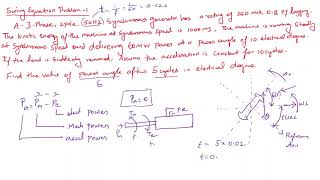 Swing Equation Problem-1
t = 1/f = 1/50 = 0.02s
A 3-Phase, 2pole (50Hz) Synchronous Generator has a rating of 250 MVA, 0.8 Pf lagging.
The kinetic energy of the machine at Synchronous Speed is 1000 MJ. The machine is running steadily
at Synchronous Speed and delivering 60MW power at a power angle of 10 electrical degree.
If the load is suddenly removed, Assume the acceleration is constant for 10 cycles.
Find the value of power angle after 5 cycles in electrical degree.
δ
Pa = Pm - Pe
Pe = 0
elect power
Mech power
power
Pm
Te
Pe
Reference
axis
t = 5 x 0.02
t = 0.